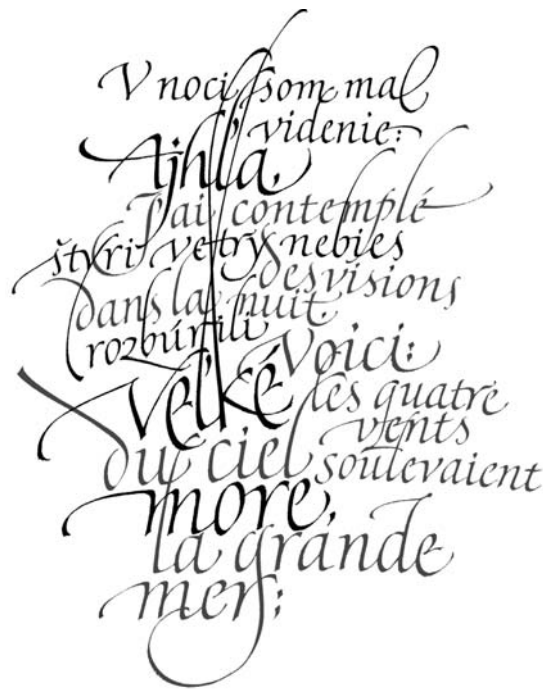 V noci som mal
videnie:
Ajhľa,
J'ai contemplé
štyri vetry nebies
des visions
dans la nuit
rozbúrili
Voici:
veľké
les quatre
vents
du ciel
soulevaient
more,
la grande
mer;